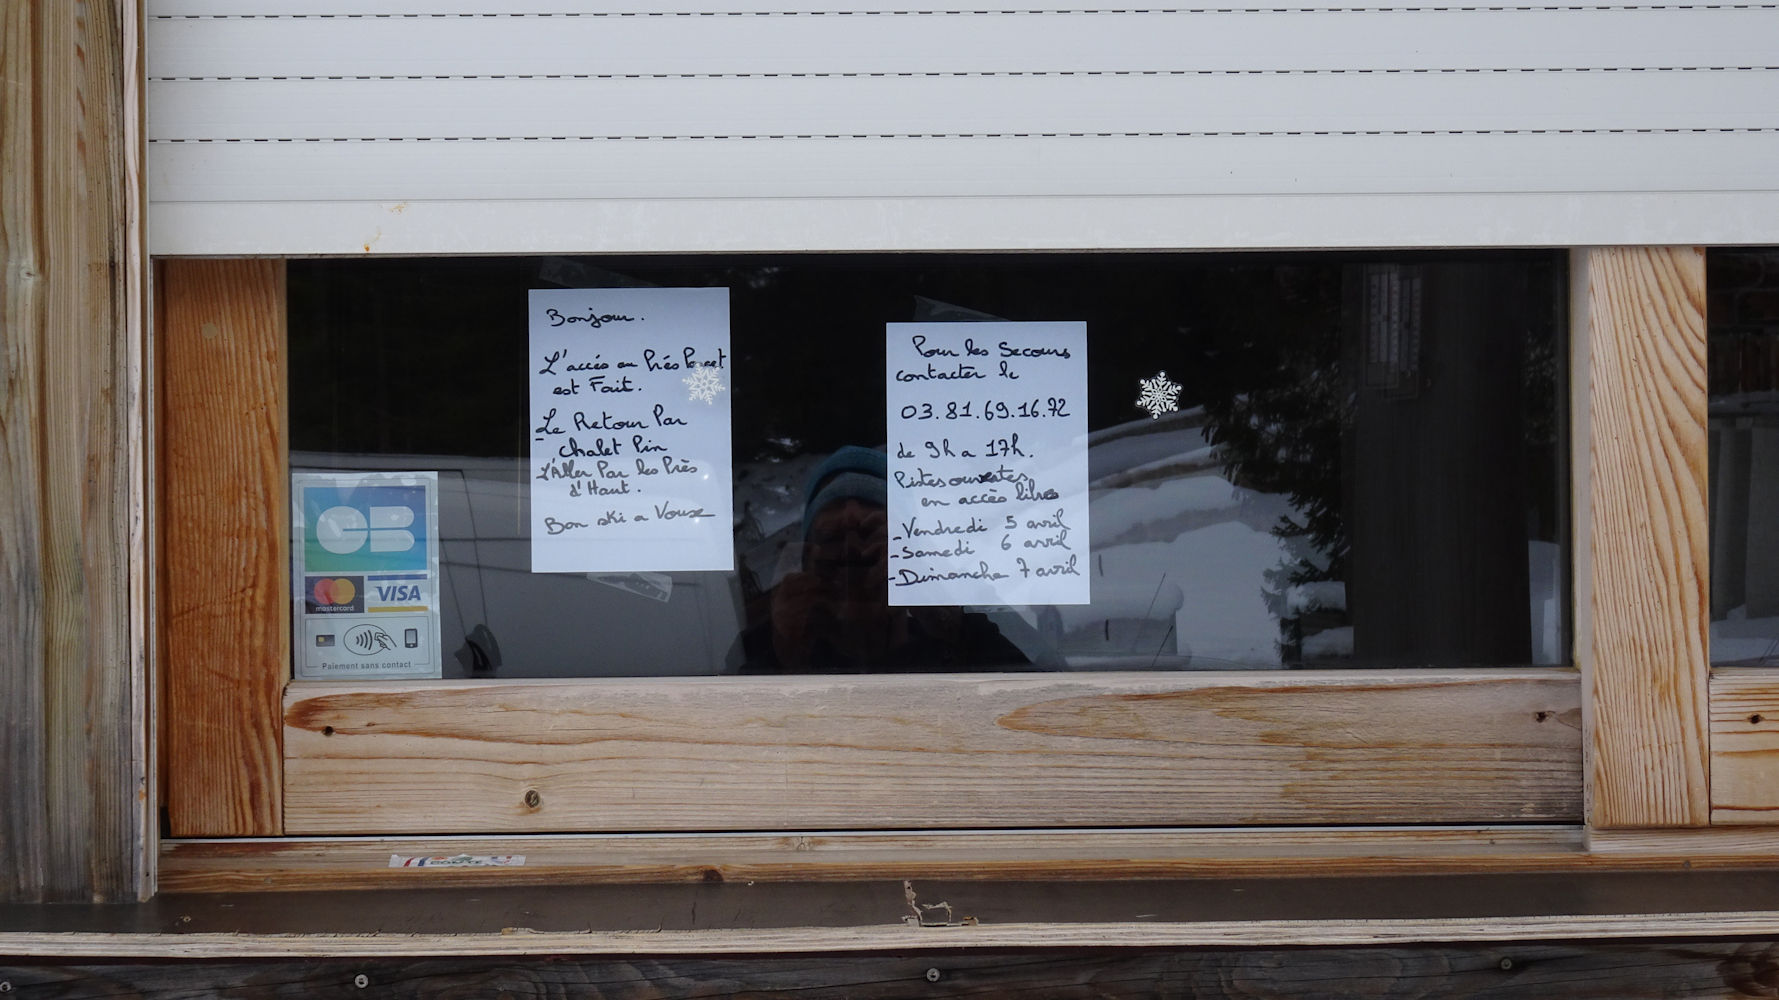 Bonjour.
L'accés au Prés Poncet
est Fait.
Le Retour Par
chalet Pin
L'Aller Par les Près
d'Haut.
Bon ski a Vous
Pour les Secours
contacter le
03.81.69.16.72
de 9h a 17h.
Pistes ouvertes
en accès libre
- Vendredi 5 avril
- Samedi 6 avril
- Dimanche 7 avril
CB
mastercard
VISA
Paiement sans contact